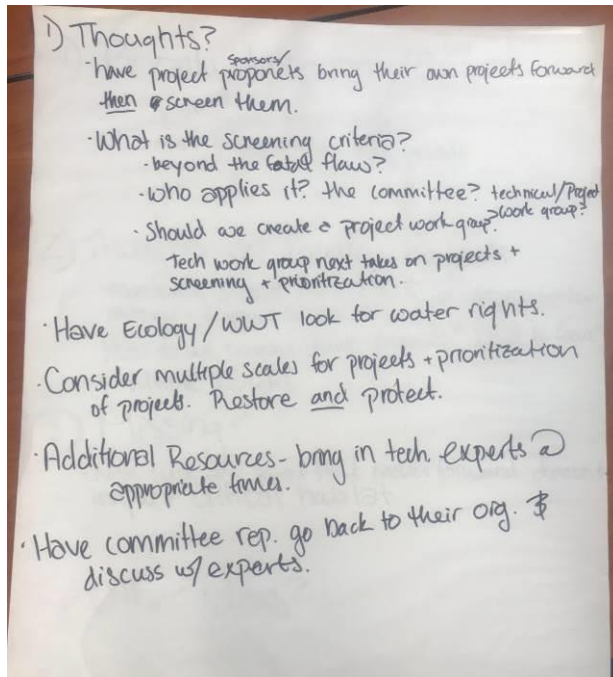 1) Thoughts?
Sponsors/
· have project proponets bring their own projects forward
then screen them.
· What is the screening criteria?
- beyond the fatal flaw?
- who applies it? the committee? technical/Project
work group?
· Should we create a project work group?
Tech work group next takes on projects +
screening + prioritization.
· Have Ecology/WWT look for water rights.
· Consider multiple scales for projects + prioritization
of projects. Restore and protect.
· Additional Resources - bring in tech. experts @
appropriate times.
· Have committee rep. go back to their org. &
discuss w/ experts.